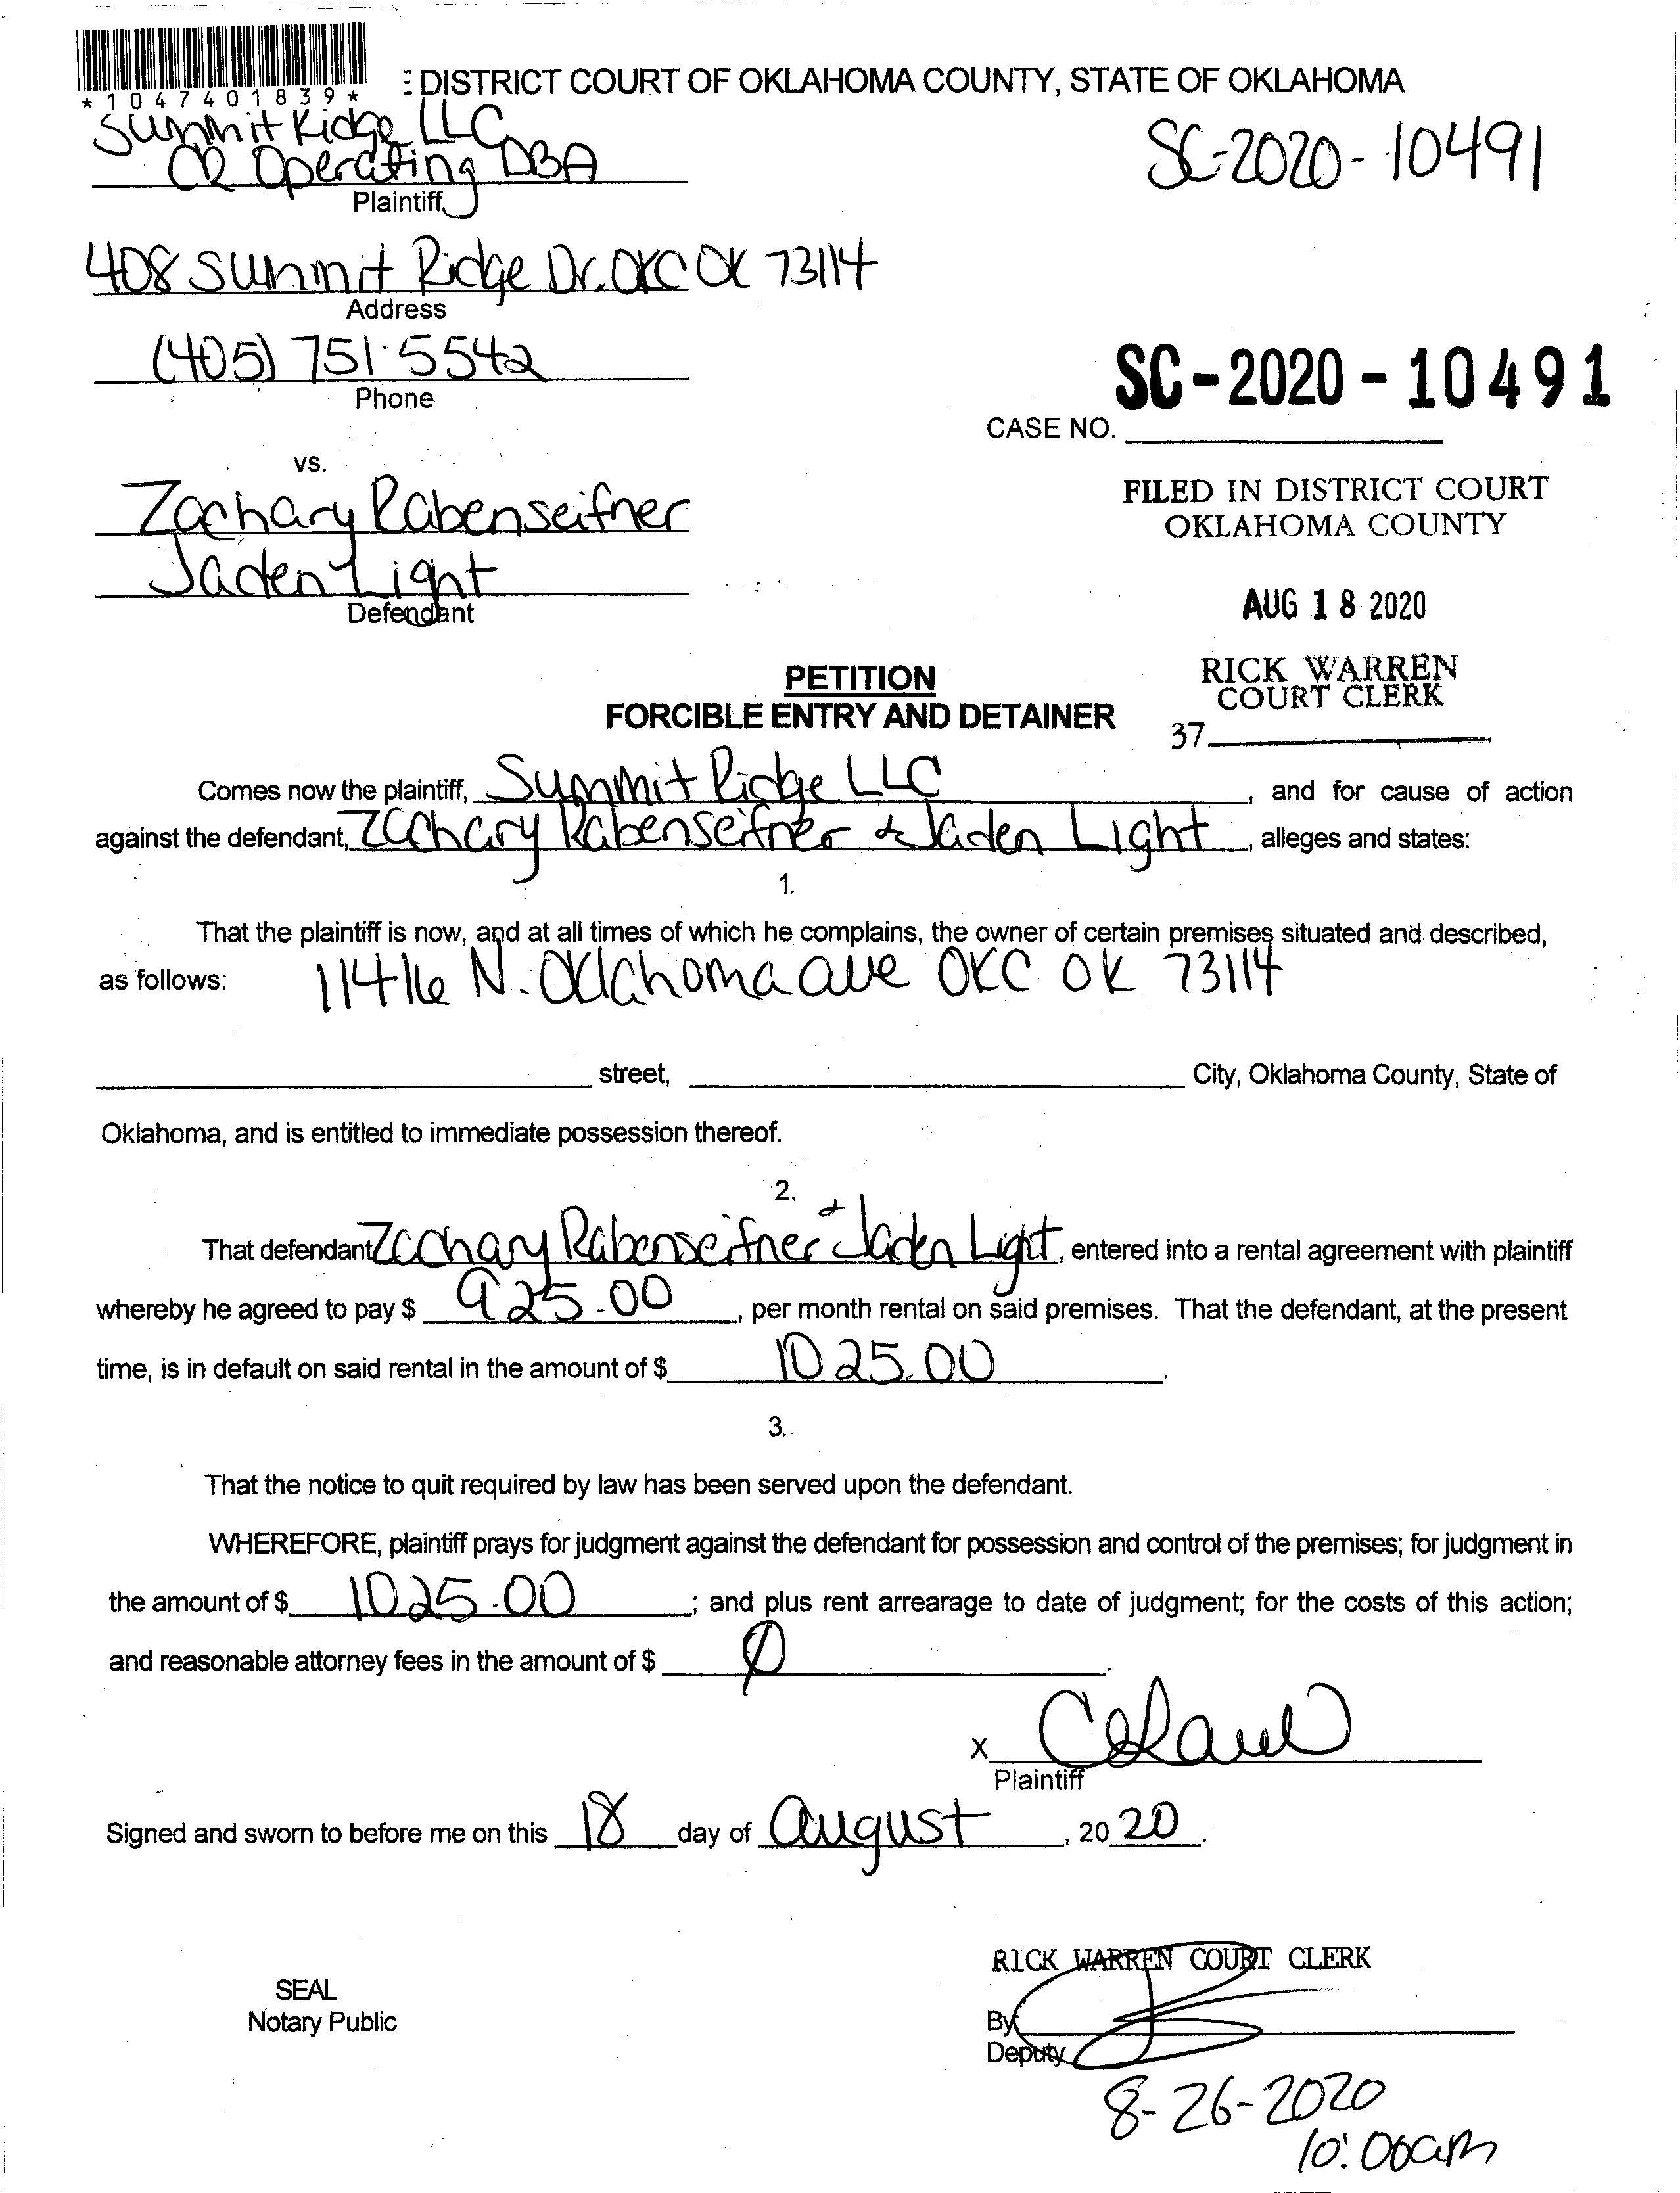 *1047401839*
E DISTRICT COURT OF OKLAHOMA COUNTY, STATE OF OKLAHOMA
Summit Ridge LLC
CR Operating DBA
Plaintiff
SC-2020-10491
408 Summit Ridge Dr. OKC OK 73114
Address
(405) 751-5542
Phone
SC-2020-10491
CASE NO.
vs.
Zachary Rabenseifner
Jaden Light
Defendant
FILED IN DISTRICT COURT
OKLAHOMA COUNTY
AUG 18 2020
RICK WARREN
COURT CLERK
37
PETITION
FORCIBLE ENTRY AND DETAINER
Comes now the plaintiff, Summit Ridge LLC, and for cause of action
against the defendant, Zachary Rabenseifner & Jaden Light, alleges and states:
1.
That the plaintiff is now, and at all times of which he complains, the owner of certain premises situated and described,
as follows: 11416 N. Oklahoma ave OKC OK 73114
street, City, Oklahoma County, State of
Oklahoma, and is entitled to immediate possession thereof.
2.
That defendant Zachary Rabenseifner & Jaden Light, entered into a rental agreement with plaintiff
whereby he agreed to pay $ 925.00, per month rental on said premises. That the defendant, at the present
time, is in default on said rental in the amount of $ 1025.00.
3.
That the notice to quit required by law has been served upon the defendant.
WHEREFORE, plaintiff prays for judgment against the defendant for possession and control of the premises; for judgment in
the amount of $ 1025.00; and plus rent arrearage to date of judgment; for the costs of this action;
and reasonable attorney fees in the amount of $ 0.
X
Plaintiff
Signed and sworn to before me on this 18 day of August, 2020.
RICK WARREN COURT CLERK
SEAL
Notary Public
By
Deputy
8-26-2020
10:00am